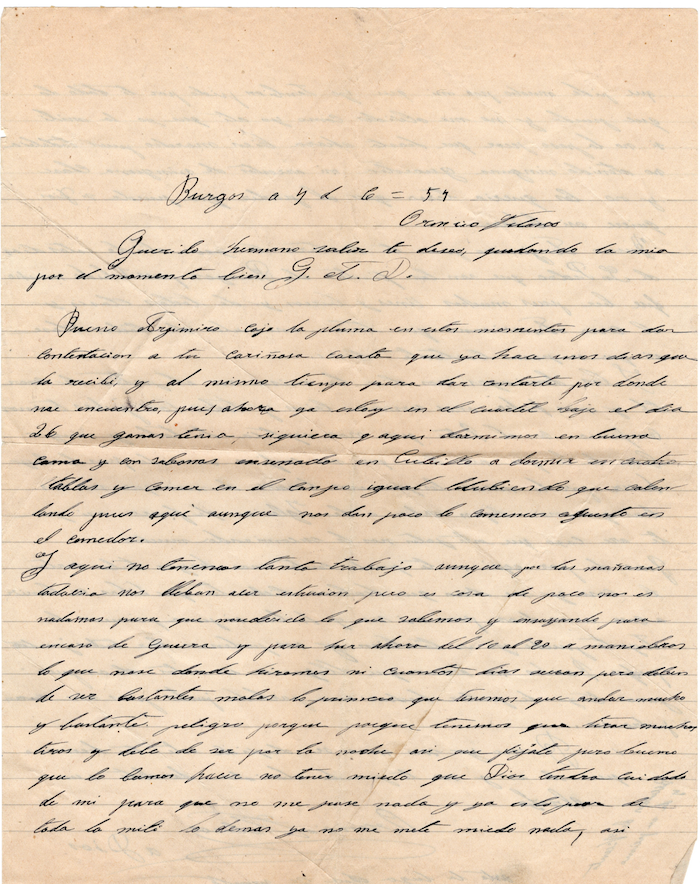 Burgos a 7 d 6 = 54
Oroncio Velasco
Querido hermano salud te deseo, quedando la mia
por el momento bien G. A. D.
Bueno Argimiro cojo la pluma en estos momentos para dar
contestacion a tu cariñosa carata que ya hace unos dias que
la recibi, y al mismo tiempo para dar contarte por donde
me encuentro, pues ahora ya estoy en el cuartel baje el dia
26 que ganas tenia, siquiera q aqui dormimos en buena
cama y con sabanas en Cubillo a dormir en cuatro
tablas y comer en el campo igual de que calen
tando pues aqui aunque nos dan poco lo comemos agusto en
el comedor.
Y aqui no tenemos tanto trabajo aunque por las mañanas
todavia nos lleban acer estrucion pero es cosa de poco nos es
nadamas para que lo que sabemos y ensayando para
encaso de Guerra y para ahora del 10 al 20 a maniobras
lo que nose donde hiremos ni cuantos dias seran, pero deben
de ser bastantes malas lo primero que tenemos que andar mucho
y bastante peligro porque tenemos que tirar muchos
tiros y debe de ser por la noche asi que fijate pero bueno
que lo bamos hacer no tener miedo que Dios tendra cuidado
de mi para que no me pase nada y ya es lo peor de
toda la mili lo demas ya no me mete miedo nada, asi